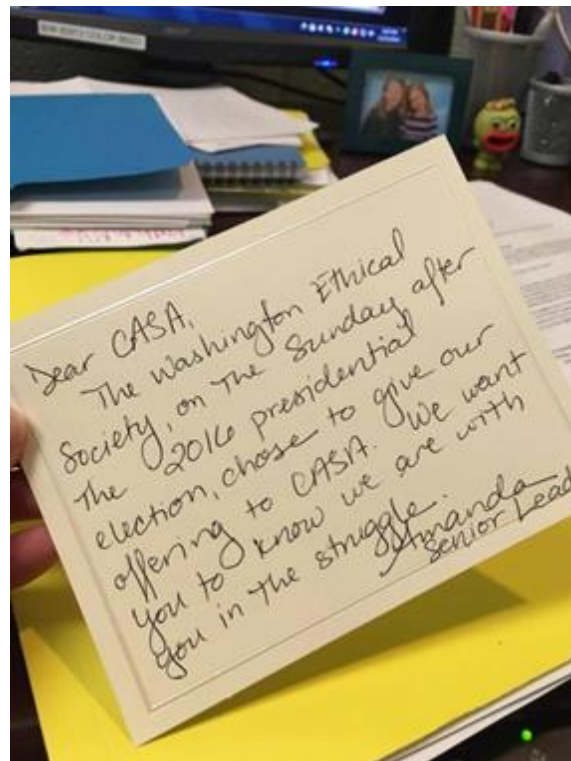 Dear CASA,
The Washington Ethical
Society, on the Sunday after
the 2016 presidential
election, chose to give our
offering to CASA. We want
you to know we are with
you in the struggle.
Amanda
Senior Lead